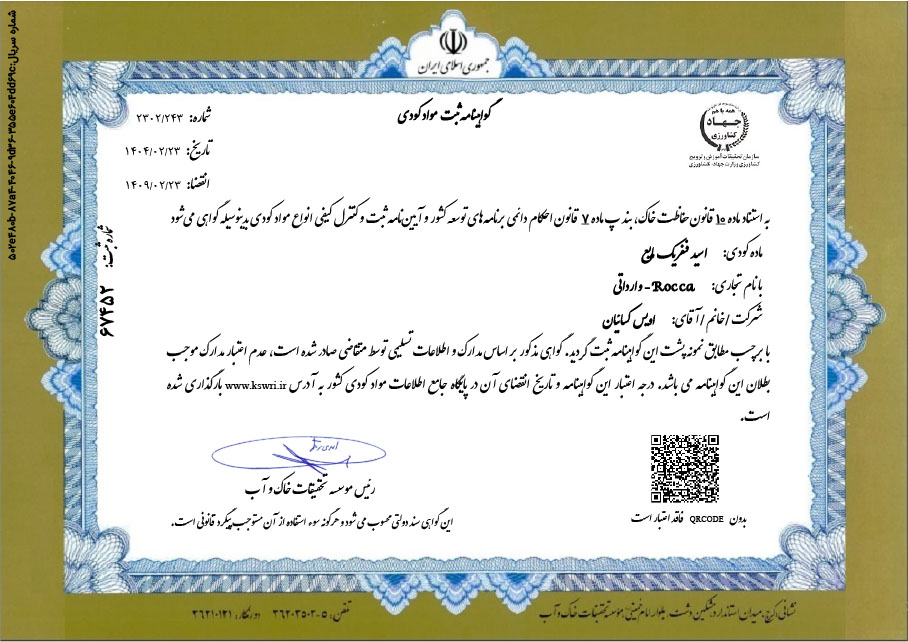 جمهوری اسلامی ایران
گواهینامه ثبت مواد کودی
همه با هم
جهاد
کشاورزی
سازمان تحقیقات، آموزش و ترویج
کشاورزی وزارت جهاد کشاورزی
شماره: ۲۳۰۲/۲۴۳
تاریخ: ۱۴۰۴/۰۲/۲۳
انقضا: ۱۴۰۹/۰۲/۲۳
به استناد ماده ۱۰ قانون حفاظت خاک، بند پ ماده ۷ قانون احکام دائمی برنامه های توسعه کشور و آیین نامه ثبت و کنترل کیفی انواع مواد کودی بدینوسیله گواهی می شود
ماده کودی: اسید فسفریک مایع
با نام تجاری: Rocca - وارداتی
شرکت / خانم / آقای: اویس کیانیان
با برچسب مطابق نمونه پشت این گواهینامه ثبت گردید. گواهی مذکور بر اساس مدارک و اطلاعات تسلیمی توسط متقاضی صادر شده است، عدم اعتبار مدارک موجب
بطلان این گواهینامه می باشد. درجه اعتبار این گواهینامه و تاریخ انقضای آن در پایگاه جامع اطلاعات مواد کودی کشور به آدرس www.kswri.ir بارگذاری شده
است.
شماره ثبت: ۶۷۴۵۲
رئیس موسسه تحقیقات خاک و آب
بدون QRCODE فاقد اعتبار است
این گواهی سند دولتی محسوب می شود و هرگونه سوء استفاده از آن مستوجب پیگرد قانونی است.
نشانی: کرج، میدان استاندارد، مشکین دشت، بلوار امام خمینی، موسسه تحقیقات خاک و آب
تلفن: ۵-۳۶۲۰۳۵۰۲ دورنگار: ۳۶۲۱۰۱۲۱
شماره سریال: